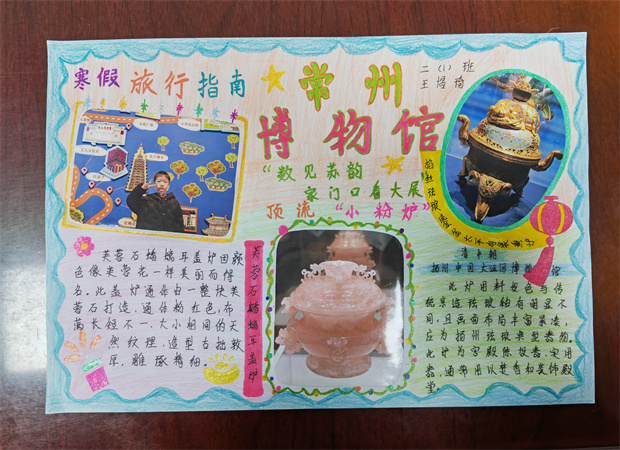 寒假旅行指南
常州
博物馆
"数见苏韵
家门口看大展"
顶流"小粉炉"
二(1)班
王煜
清中期
扬州中国大运河博物馆
此炉因料胎色与传
统京造珐琅釉有明显不
同,且画面布局丰富紧凑,
应为扬州珐琅典型器物。
此炉为宫殿陈设器,实用
器,通常用以焚香和装饰殿
堂。
芙蓉石蟠螭耳盖炉
芙蓉石蟠螭耳盖炉因颜
色像芙蓉花一样美丽而得
名。此盖炉通体由一整块芙
蓉石打造,通体粉红色,布
满长短不一、大小相间的天
然纹理,造型古拙敦
厚,雕琢精细。